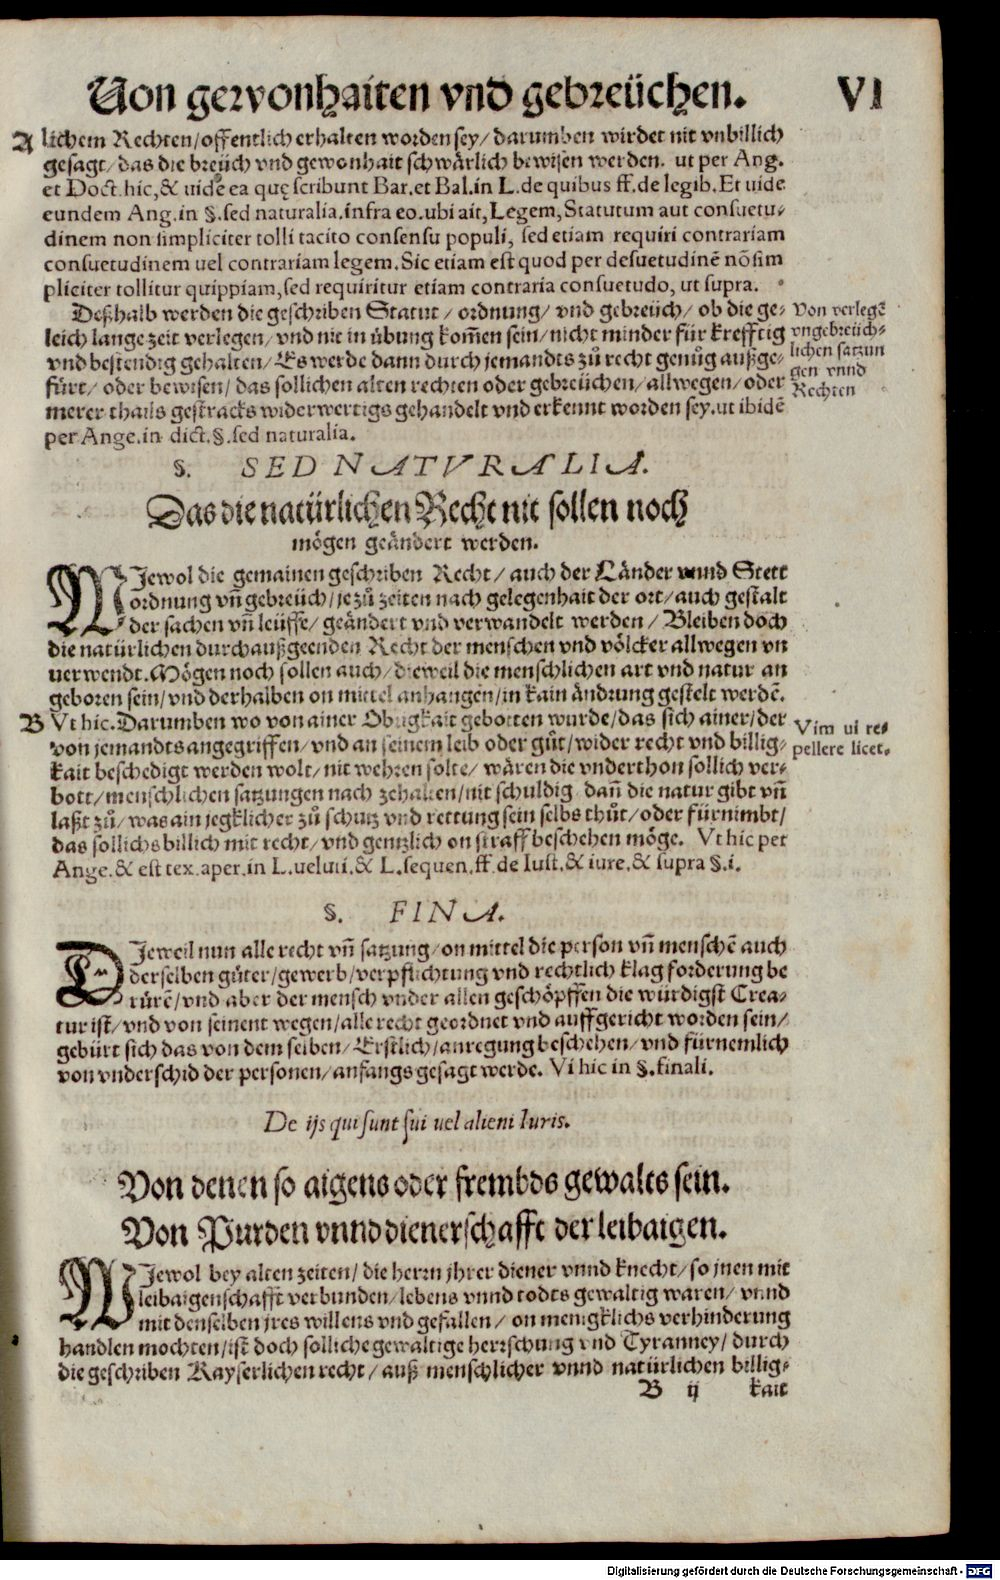 Von gewonhaiten vnd gebreüchen. VI
A lichem Rechten/offentlich erhalten worden sey/darumben wirdet nit vnbillich
gesagt/das die breüch vnd gewonhait schwärlich bewisen werden. ut per Ang.
et Doct.hic,& uide ea quę scribunt Bar.et Bal.in L.de quibus ff.de legib.Et uide
eundem Ang.in §.sed naturalia.infra eo.ubi ait,Legem,Statutum aut consuetu-
dinem non simpliciter tolli tacito consensu populi, sed etiam requiri contrariam
consuetudinem uel contrariam legem.Sic etiam est quod per desuetudinē nō sim
pliciter tollitur quippiam,sed requiritur etiam contraria consuetudo, ut supra.
Deßhalb werden die geschriben Statut/ordnung/vnd gebreüch/ob die ge-
leich lange zeit verlegen/vnd nit in übung kom̄en sein/nicht minder für krefftig
vnd bestendig gehalten/Es werde dann durch jemandts zů recht genůg außge-
fürt/oder bewisen/das sollichen alten rechten oder gebreüchen/allwegen/oder
merer thails gestracks widerwertigs gehandelt vnd erkennt worden sey.ut ibidē
per Ange.in dict.§.sed naturalia.
Von verlegē
vngebreüch-
lichen satzun
gen vnnd
Rechten
§. SED NATVRALIA.
Das die natürlichen Recht nit sollen noch
mögen geändert werden.
WJewol die gemainen geschriben Recht/auch der Länder vnnd Stett
ordnung vn̄ gebreüch/je zů zeiten nach gelegenhait der ort/auch gestalt
der sachen vn̄ leüffe/geändert vnd verwandelt werden/Bleiben doch
die natürlichen durchaußgeenden Recht der menschen vnd völcker allwegen vn
uerwendt.Mögen noch sollen auch/dieweil die menschlichen art vnd natur an
geboren sein/vnd derhalben on mittel anhangen/in kain ändrung gestelt werdē.
B Vt hic.Darumben wo von ainer Obrigkait gebotten wurde/das sich ainer/der
von jemandts angegriffen/vnd an seinem leib oder gůt/wider recht vnd billig-
kait beschedigt werden wolt/nit wehren solte/wären die vnderthon sollich ver-
bott/menschlichen satzungen nach zehalten/nit schuldig dan̄ die natur gibt vn̄
laßt zů/was ain jegklicher zů schutz vnd rettung sein selbs thůt/oder fürnimbt/
das sollichs billich mit recht/vnd gentzlich on straff beschehen möge. Vt hic per
Ange.& est tex.aper.in L.ueluti.& L.sequen.ff.de Iust.& iure.& supra §.i.
Vim ui re-
pellere licet.
§. FINA.
DJeweil nun alle recht vn̄ satzung/on mittel die person vn̄ menschē auch
derselben güter/gewerb/verpflichtung vnd rechtlich klag forderung be
rürē/vnd aber der mensch vnder allen geschöpffen die würdigst Crea-
tur ist/vnd von seinent wegen/alle recht geordnet vnd auffgericht worden sein/
gebürt sich das von dem selben/Erstlich/anregung beschehen/vnd fürnemlich
von vnderschid der personen/anfangs gesagt werde. Vt hic in §.finali.
De ijs qui sunt sui uel alieni Iuris.
Von denen so aigens oder frembds gewalts sein.
Von Purden vnnd dienerschafft der leibaigen.
WJewol bey alten zeiten/die herrn jhrer diener vnnd knecht/so jnen mit
leibaigenschafft verbunden/lebens vnnd todts gewaltig waren/vnnd
mit denselben jres willens vnd gefallen/on menigklichs verhinderung
handlen mochten/ist doch solliche gewaltige herrschung vnd Tyranney/durch
die geschriben Kayserlichen recht/auß menschlicher vnnd natürlichen billig-
B ij kait
Digitalisierung gefördert durch die Deutsche Forschungsgemeinschaft - DFG